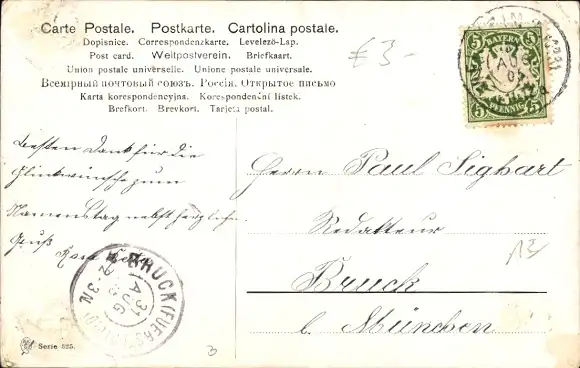 Carte Postale. Postkarte. Cartolina postale.
Dopisnice. Correspondenzkarte. Levelező-Lap.
Post card. Weltpostverein. Briefkaart.
Union postale universelle. Unione postale universale.
Всемірный почтовый союзъ. Россія. Открытое письмо
Karta korespondencyjna. Korespondenční lístek.
Brefkort. Brevkort. Tarjeta postal.
€3-
5 BAYERN 5
5 PFENNIG 5
Besten Dank für die
Glückwünsche zum
Namenstag nebst herzlichen
Gruß
Herrn Paul Sighart
Redakteur
Bruck
b. München
BRUCK
31
AUG
2-3N
Serie 525.